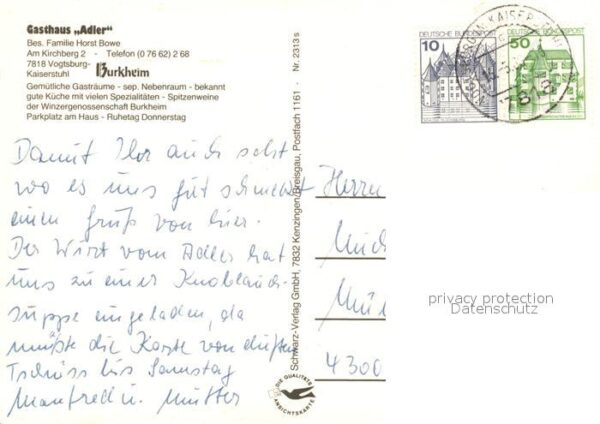 Gasthaus „Adler"
Bes. Familie Horst Bowe
Am Kirchberg 2 - Telefon (0 76 62) 2 68
7818 Vogtsburg-
Kaiserstuhl Burkheim
Gemütliche Gasträume - sep. Nebenraum - bekannt
gute Küche mit vielen Spezialitäten - Spitzenweine
der Winzergenossenschaft Burkheim
Parkplatz am Haus - Ruhetag Donnerstag
Damit Ihr auch seht
wo es uns gut schmeckt
einen Gruß von hier.
Der Wirt vom Adler hat
uns zu einer Knoblauch-
suppe eingeladen, da
müßte die Karte von duften
Tschüss bis Samstag
Manfred u. Mutter
Schwarz-Verlag GmbH, 7832 Kenzingen/Breisgau, Postfach 1161 - Nr. 2313 s
DIE QUALITÄTS
ANSICHTSKARTE
DEUTSCHE BUNDESPOST
10
DEUTSCHE BUNDESPOST
50
Herrn
4300
privacy protection
Datenschutz